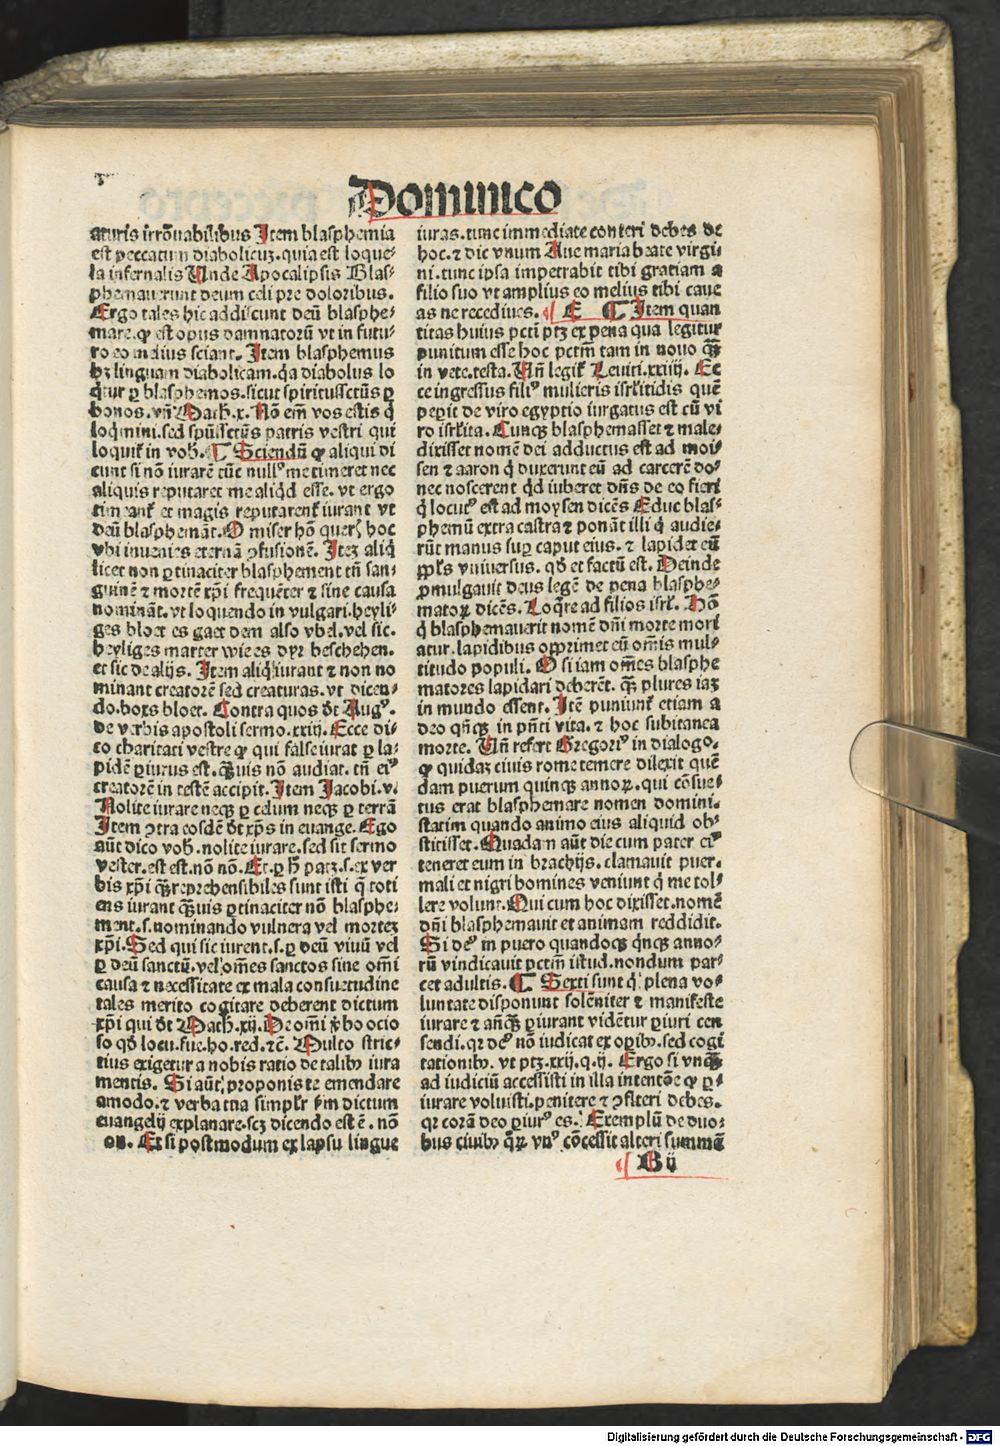 Dominico
aturis irrõnabilibus Item blasphemia
est peccatum diabolicuz. quia est loque-
la infernalis Unde Apocalipsis Blas-
phemauerunt deum celi pre doloribus.
Ergo tales hic addiscunt deũ blasphe-
mare. qꝫ est opus damnatorũ vt in futu-
ro eo melius sciant. Item blasphemus
hꝫ linguam diabolicam. q̃a diabolus lo
q̃tur ꝑ blasphemos. sicut spiritussctũs ꝑ
bonos. vñ Math. x. Nõ em̃ vos estis q̃
loq̃mini. sed spũssctũs patris vestri qui
loquit᷑ in vob̃. ¶ Sciendũ ꝙ aliqui di
cunt si nõ iurarẽ tũc null᷒ me timeret nec
aliquis reputaret me aliq̃d esse. vt ergo
timeant᷑ et magis reputarent᷑ iurant vt
deũ blasphemãt. O miser hõ queris hoc
vbi inuenies eternã ꝯfusionẽ. Itez aliq̃
licet non ꝑtinaciter blasphement tñ san-
guinẽ ⁊ mortẽ xp̃i frequẽter ⁊ sine causa
nominãt. vt loquendo in vulgari. heyli-
ges bloet es gaet dem also vbel. vel sic.
heyliges marter wie es dyr beschehen.
et sic de alijs. Item aliq̃ iurant ⁊ non no
minant creatorẽ sed creaturas. vt dicen-
do. boxs bloet. Contra quos d̃t Aug᷒.
de verbis apostoli sermo. xxiij. Ecce di-
co charitati vestre ꝙ qui false iurat ꝑ la-
pidẽ ꝑiurus est. q̃uis nõ audiat. tñ ei᷒
creatorẽ in testẽ accipit. Item Jacobi. v.
Nolite iurare neqꝫ ꝑ celum neqꝫ ꝑ terrã
Item ꝯtra eosdẽ d̃t xp̃s in euange. Ego
aũt dico vob̃. nolite iurare. sed sit sermo
vester. est est. nõ nõ. Et ꝑ h̃ patꝫ. s. ex ver
bis xp̃i q̃ꝫ reprehensibiles sunt isti q̃ toti
ens iurant q̃ꝫuis ꝑtinaciter nõ blasphe-
ment. s. nominando vulnera vel mortez
xp̃i. Sed qui sic iurent. s. ꝑ deũ viuũ vel
ꝑ deũ sanctũ. vel om̃es sanctos sine om̃i
causa ⁊ necessitate ex mala consuetudine
tales merito cogitare deberent dictum
xp̃i qui d̃t Math. xij. De om̃i v̓bo ocio
so qd̃ locu. fue. ho. red. ⁊c̃. Multo stric-
tius exigetur a nobis ratio de talibꝫ iura
mentis. Si aũt proponis te emendare
amodo. ⁊ verba tua simplr̃ s̃m dictum
euangelij explanare. scꝫ dicendo est ẽ. nõ
on. Et si postmodum ex lapsu lingue
iuras. tunc immediate conteri debes de
hoc. ⁊ dic vnum Aue maria beate virgi
ni. tunc ipsa impetrabit tibi gratiam a
filio suo vt amplius eo melius tibi caue
as ne recediues. E ¶ Item quan
titas huius pctĩ ptꝫ ex pena qua legitur
punitum esse hoc pctm̃ tam in nouo q̃ꝫ
in vete. testa. Uñ legit᷑ Leuiti. xxiiij. Ec
ce ingressus fili᷒ mulieris isrl̃itidis quẽ
pepit de viro egyptio iurgatus est cũ vi
ro isrl̃ita. Cunqꝫ blasphemasset ⁊ male-
dixisset nomẽ dei adductus est ad moi
sen ⁊ aaron q̃ duxerunt eũ ad carcerẽ do-
nec noscerent q̃d iuberet dñs de eo fieri
q̃ locut᷒ est ad moysen dicẽs Educ blas-
phemũ extra castra ⁊ ponãt illi q̃ audie-
rũt manus suꝑ caput eius. ⁊ lapidet eũ
ppl̃s vniuersus. qd̃ et factũ est. Deinde
ꝓmulgauit deus legẽ de pena blasphe-
matoꝝ dicẽs. Loq̃re ad filios isrl̃. Hõ
q̃ blasphemauerit nomẽ dñi morte mori
atur. lapidibus opprimet eũ om̃is mul-
titudo populi. O si iam om̃es blasphe
matores lapidari deberẽt. q̃ꝫ plures iaz
in mundo essent. Itẽ puniunt᷑ etiam a
deo qñqꝫ in pñti vita. ⁊ hoc subitanea
morte. Uñ refert Gregori᷒ in dialogo.
ꝙ quidaz ciuis rome temere dilexit quẽ
dam puerum quinqꝫ annoꝝ. qui cõsue-
tus erat blasphemare nomen domini.
statim quando animo eius aliquid ob-
stitisset. Quadam aũt die cum pater ei᷒
teneret eum in brachijs. clamauit puer.
mali et nigri homines veniunt q̃ me tol-
lere volunt. Qui cum hoc dixisset. nomẽ
dñi blasphemauit et animam reddidit.
Si de᷒ in puero quandoqꝫ q̃nqꝫ anno-
rũ vindicauit pctm̃ istud. nondum par-
cet adultis. ¶ Sexti sunt q̃ plena vo-
luntate disponunt solẽniter ⁊ manifeste
iurare ⁊ añq̃ꝫ ꝑiurant vidẽtur ꝑiuri cen
sendi. qꝛ de᷒ nõ iudicat ex oꝑibꝫ. sed cogi
tationibꝫ. vt ptꝫ. xxij. q. ij. Ergo si vnq̃ꝫ
ad iudiciũ accessisti in illa intentõe ꝙ ꝑ-
iurare voluisti. penitere ⁊ ꝯfiteri debes.
qꝛ corã deo ꝑiur᷒ es. Exemplũ de duo-
bus ciuibꝫ q̃ꝝ vn᷒ cõcessit alteri summã
G ij
Digitalisierung gefördert durch die Deutsche Forschungsgemeinschaft - DFG